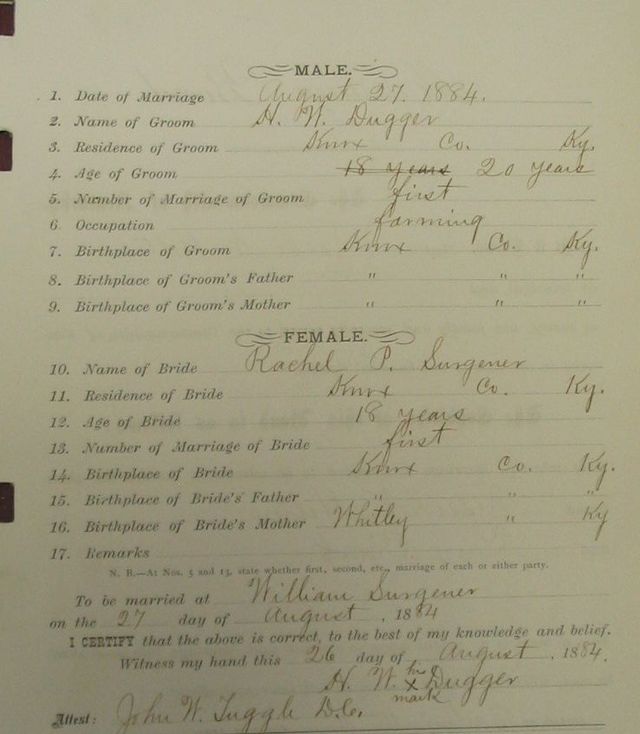 MALE.
1. Date of Marriage August 27. 1884.
2. Name of Groom H. W. Dugger
3. Residence of Groom Knox Co. Ky.
4. Age of Groom 18 years 20 years
5. Number of Marriage of Groom first
6 Occupation farming
7. Birthplace of Groom Knox Co. Ky.
8. Birthplace of Groom's Father " " "
9. Birthplace of Groom's Mother " " "
FEMALE.
10. Name of Bride Rachel P. Surgener
11. Residence of Bride Knox Co. Ky.
12. Age of Bride 18 years
13. Number of Marriage of Bride first
14. Birthplace of Bride Knox Co. Ky.
15. Birthplace of Bride's Father " " "
16. Birthplace of Bride's Mother Whitley " Ky
17. Remarks
N. B.—At Nos. 5 and 13, state whether first, second, etc., marriage of each or either party.
To be married at William Surgener
on the 27 day of August , 1884
I CERTIFY that the above is correct, to the best of my knowledge and belief.
Witness my hand this 26 day of August , 1884.
H. W. his x mark Dugger
Attest: John W. Tuggle D.C.